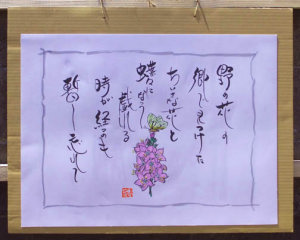 野の花の
郷で見つけた
ちいさな花と
蝶になり
戯れる
時が経つのも
暫し忘れて